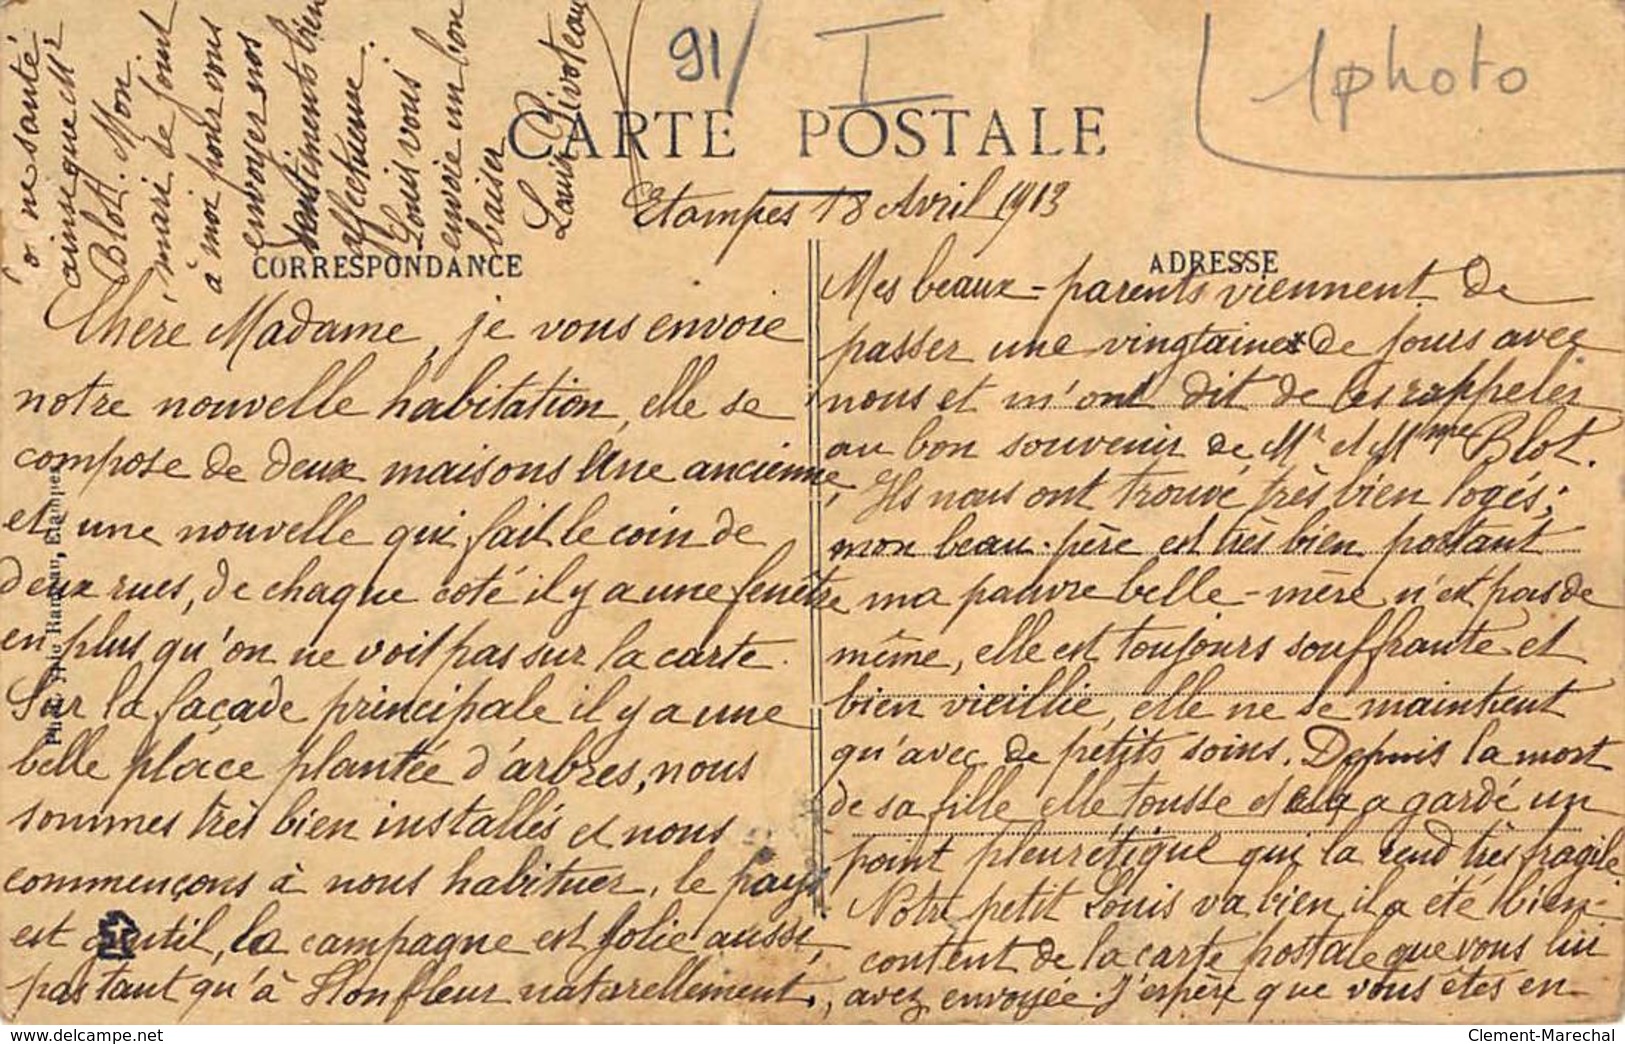 91/
I
1 photo
CARTE POSTALE
Etampes 18 Avril 1913
CORRESPONDANCE
ADRESSE
Chère Madame, je vous envoie
notre nouvelle habitation, elle se
compose de deux maisons une ancienne,
et une nouvelle qui fait le coin de
deux rues, de chaque coté il y a une fenêtre
en plus qu'on ne voit pas sur la carte.
Sur la façade principale il y a une
belle place plantée d'arbres, nous
sommes très bien installés et nous
commençons à nous habituer, le pays
est gentil, la campagne est jolie aussi,
pas tant qu'à Honfleur naturellement.
Mes beaux-parents viennent de
passer une vingtaine de jours avec
nous et m'ont dit de les rappeler
au bon souvenir de Mr et Mme Blot.
Ils nous ont trouvé très bien logés;
mon beau-père est très bien portant
ma pauvre belle-mère n'est pas de
même, elle est toujours souffrante et
bien vieillie, elle ne se maintient
qu'avec de petits soins. Depuis la mort
de sa fille elle tousse et elle a gardé un
point pleurétique qui la rend très fragile.
Notre petit Louis va bien, il a été bien
content de la carte postale que vous lui
avez envoyée. J'espère que vous êtes en
bonne santé
ainsi que Mr
Blot. Mon
mari se joint
à moi pour vous
envoyer nos
sentiments bien
affectueux.
Louis vous
envoie un bon
baiser
Louis Pivoteau
Phot. Rameau, Etampes
Clement-Marechal